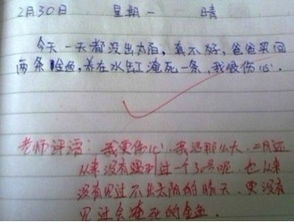 2月30日 星期一 晴
今天一天都没出太阳，真不好，爸爸买回
两条金鱼，养在水缸淹死一条，我很伤心。
老师评语：我更伤心，我活那么大，二月还
从来没有遇到过一个30号呢，也从
没有见过不出太阳的晴天，更没有
见过会淹死的金鱼